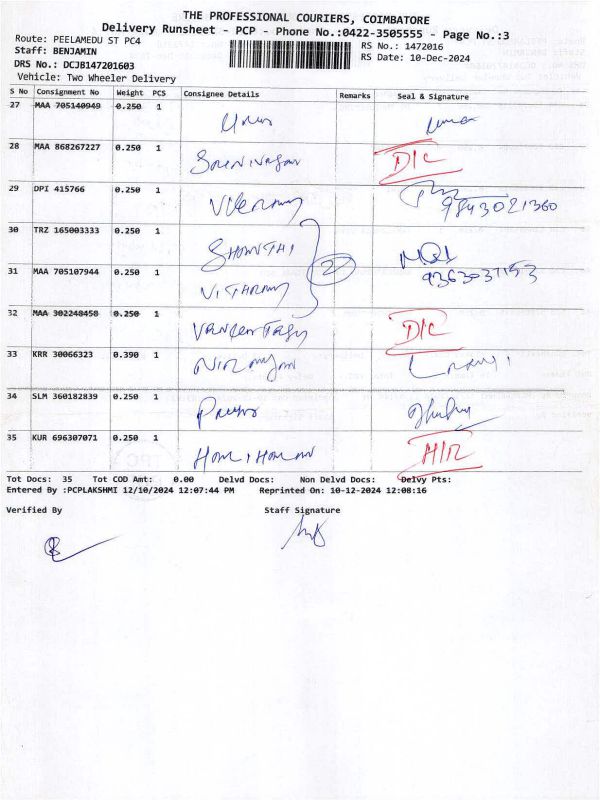 THE PROFESSIONAL COURIERS, COIMBATORE
Delivery Runsheet - PCP - Phone No.:0422-3505555 - Page No.:3
Route: PEELAMEDU ST PC4
Staff: BENJAMIN
RS No.: 1472016
DRS No.: DCJB147201603
RS Date: 10-Dec-2024
Vehicle: Two Wheeler Delivery
S No Consignment No Weight PCS Consignee Details Remarks Seal & Signature
27 MAA 705140949 0.250 1
28 MAA 868267227 0.250 1 D/C
29 DPI 415766 0.250 1 9843021360
30 TRZ 165003333 0.250 1 SHANTHI
2
31 MAA 705107944 0.250 1 9363037153
32 MAA 302248458 0.250 1 D/C
33 KRR 30066323 0.390 1
34 SLM 360182839 0.250 1
35 KUR 696307071 0.250 1
Tot Docs: 35 Tot COD Amt: 0.00 Delvd Docs: Non Delvd Docs: Delvy Pts:
Entered By :PCPLAKSHMI 12/10/2024 12:07:44 PM Reprinted On: 10-12-2024 12:08:16
Verified By Staff Signature